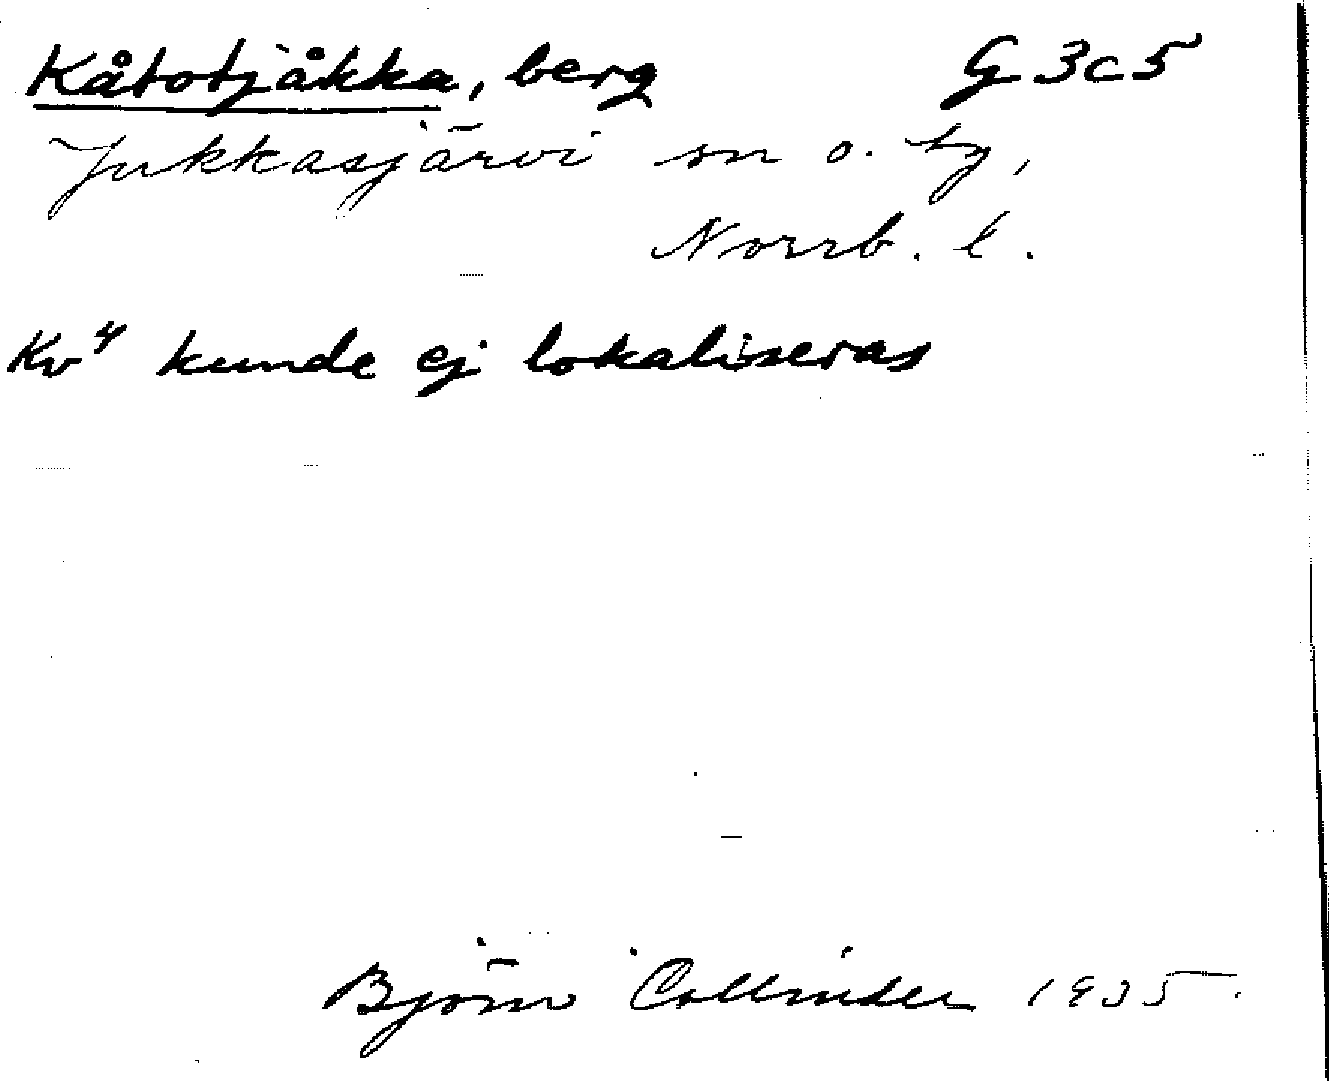 Kåtotjåkka, berg G 3c5
Jukkasjärvi sn o. tg,
Norrb. l.
Kv 4 kunde ej lokaliseras
Björn Collinder 1935.